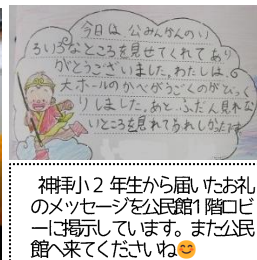 今日は公みんかんのい
ろいろなところを見せてくれてあり
がとうございました。わたしは、
大ホールのかべがうごくのがびっく
りしました。あと、ふだん見れな
いところを見れてうれしかったです
神拝小２年生から届いたお礼
のメッセージを公民館1階ロビ
ーに掲示しています。また公民
館へ来てくださいね😊